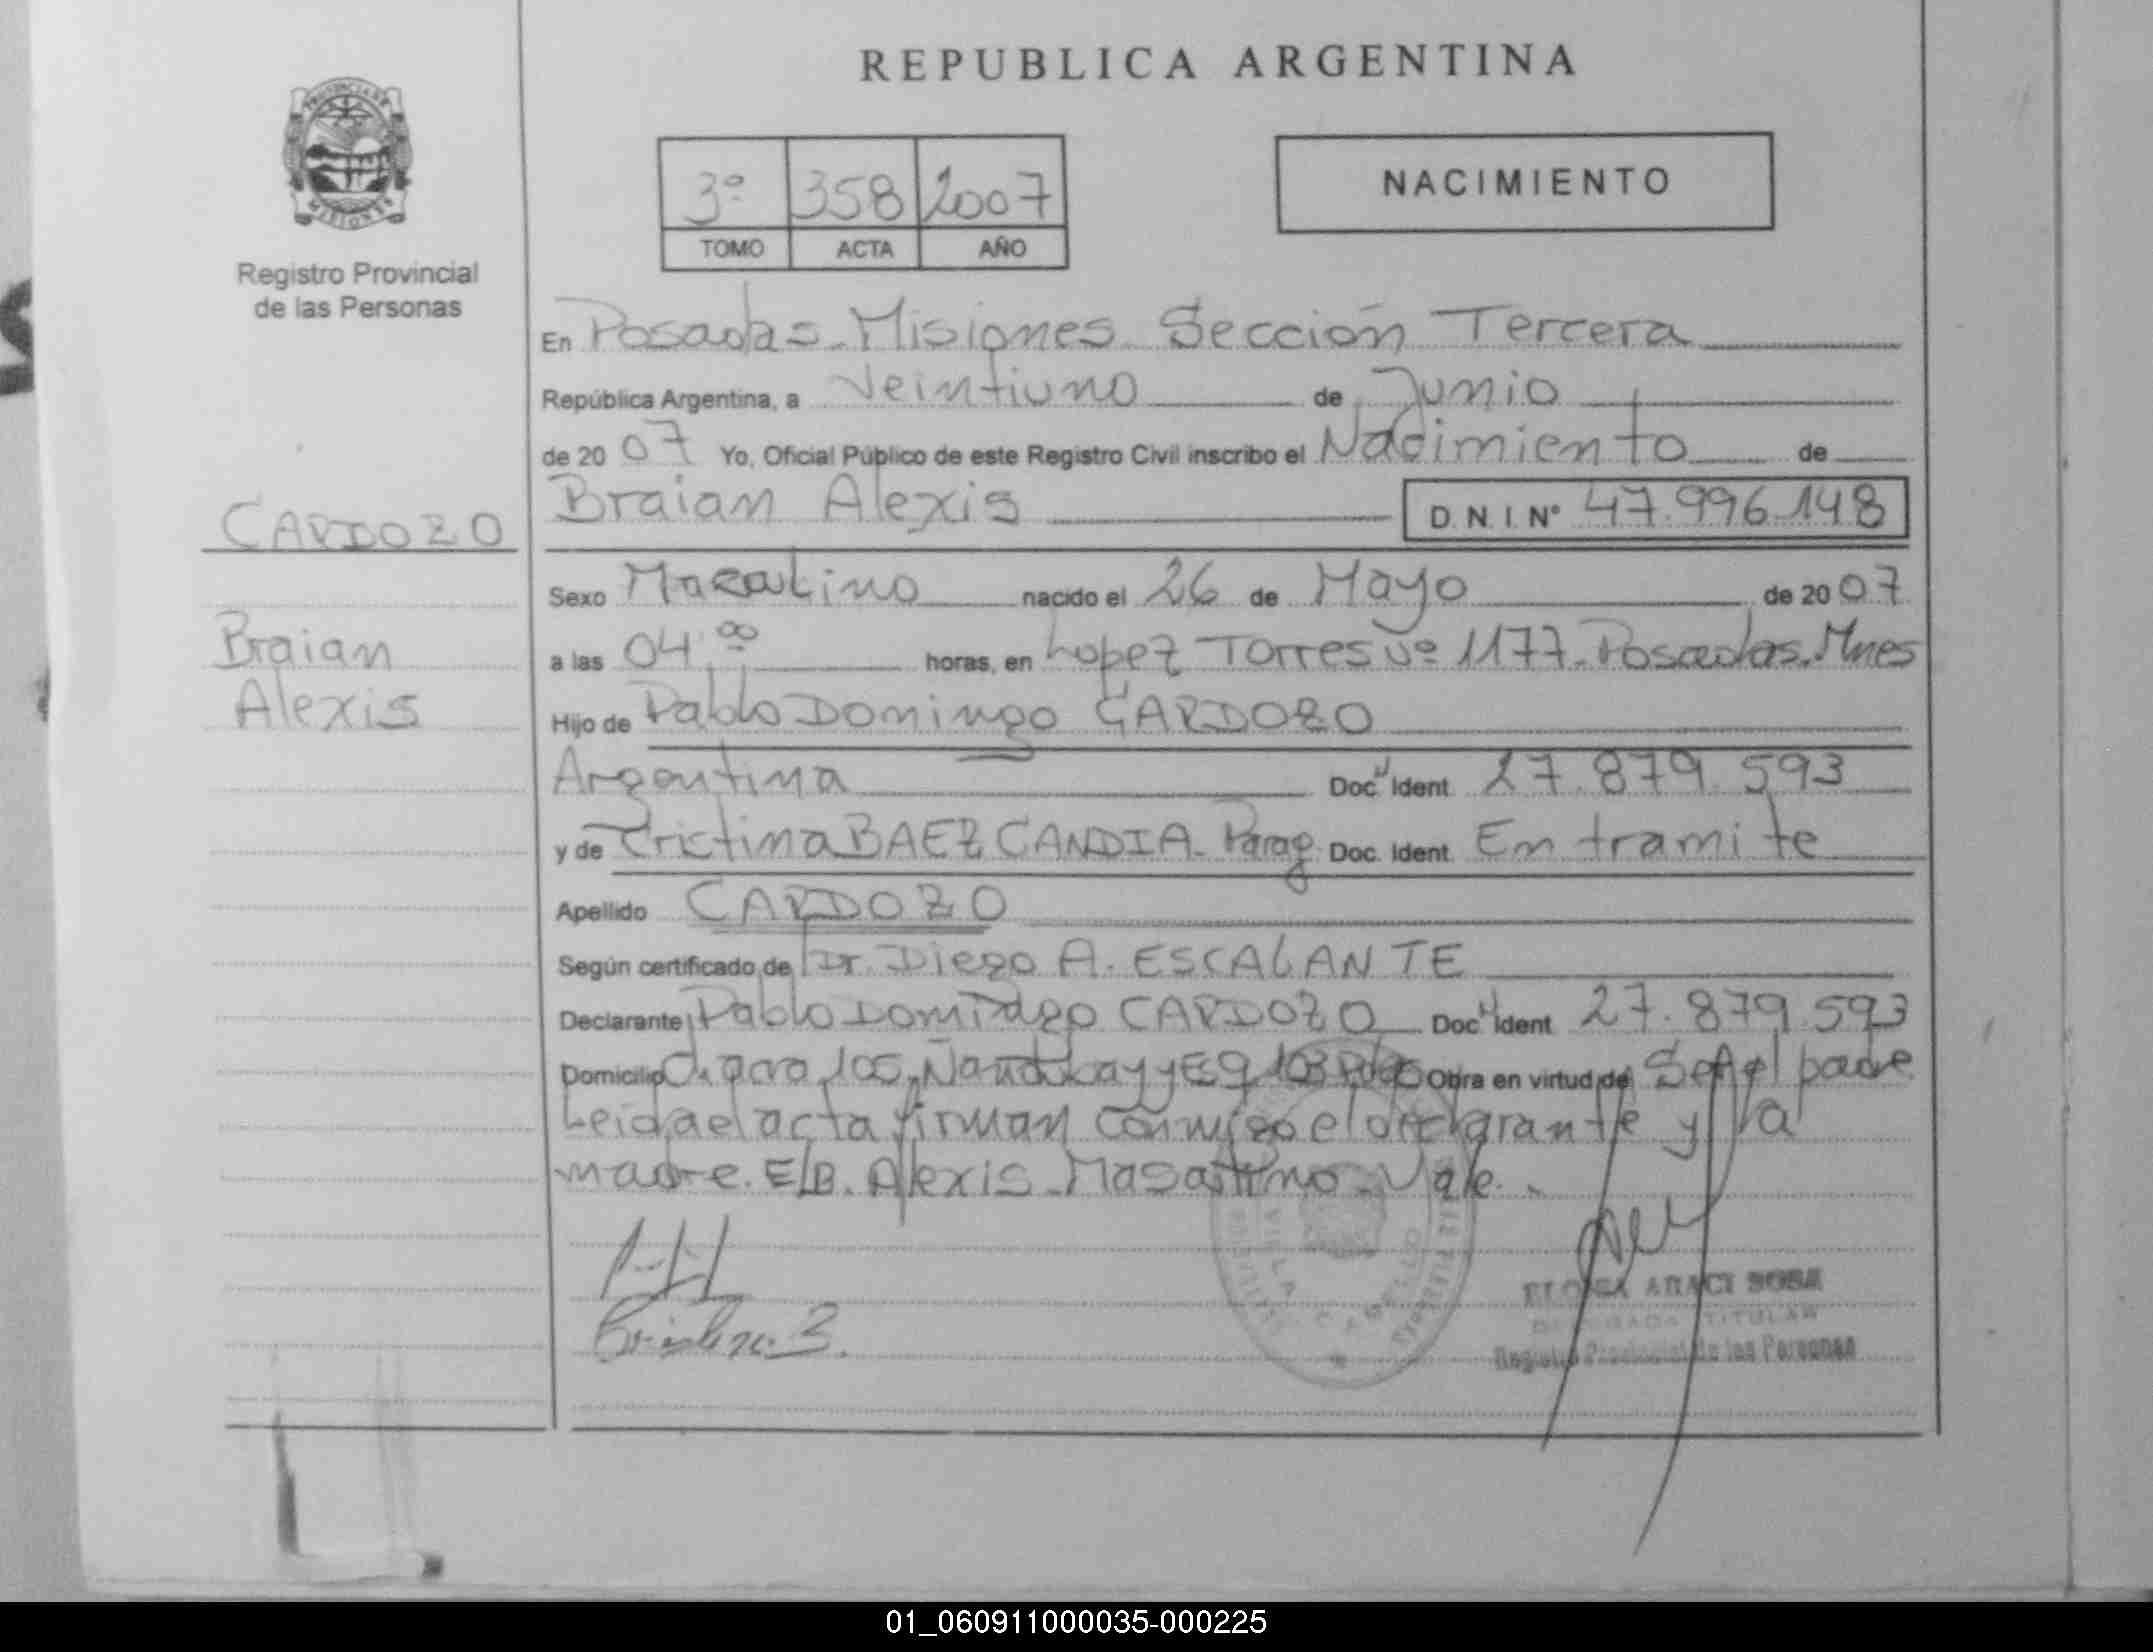 REPUBLICA ARGENTINA
PROVINCIA DE
MISIONES
Registro Provincial
de las Personas
3º 358 2007
TOMO ACTA AÑO
NACIMIENTO
En Posadas. Misiones. Sección Tercera
República Argentina, a Veintiuno de Junio
de 20 07 Yo, Oficial Público de este Registro Civil inscribo el Nacimiento de
CARDOZO
Braian Alexis D.N.I. Nº 47.996.148
Sexo Masculino nacido el 26 de Mayo de 20 07
Braian
a las 04.00 horas, en Lopez Torres Nº 1177. Posadas. Mnes
Alexis
Hijo de Pablo Domingo CARDOZO
Argentina Doc Ident 27.879.593
y de Cristina BAEZ CANDIA. Parag. Doc. Ident. En tramite
Apellido CARDOZO
Según certificado de Dr. Diego A. ESCALANTE
Declarante Pablo Domingo CARDOZO Doc Ident 27.879.593
Domicilio Chacra 105, y 103 Obra en virtud de Ser el padre
Leida el acta firman conmigo el declarante y la
madre. E/B. Alexis. Masculino. Vale.
Cristina B.
ELOISA ARACI SOSA
DELEGADA TITULAR
Registro Provincial de las Personas
01_060911000035-000225